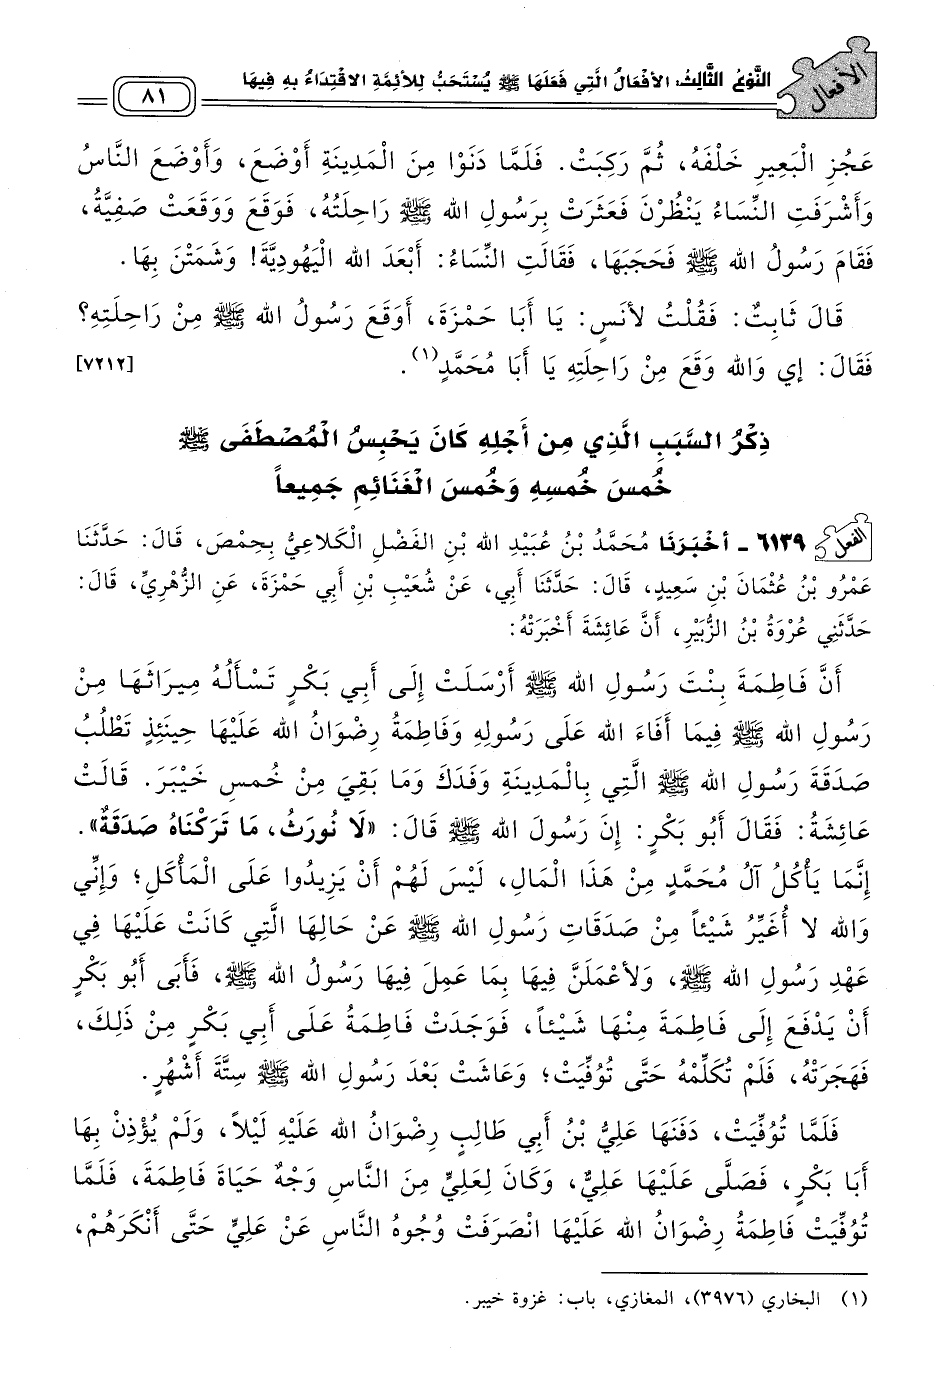 الأفعال
النَّوْعُ الثَّالِثُ: الأَفْعَالُ الَّتِي فَعَلَهَا ﷺ يُسْتَحَبُّ لِلأَئِمَّةِ الاقْتِدَاءُ بِهِ فِيهَا
٨١
عَجُزِ الْبَعِيرِ خَلْفَهُ، ثُمَّ رَكِبَتْ. فَلَمَّا دَنَوْا مِنَ الْمَدِينَةِ أَوْضَعَ، وَأَوْضَعَ النَّاسُ
وَأَشْرَفَتِ النِّسَاءُ يَنْظُرْنَ فَعَثَرَتْ بِرَسُولِ الله ﷺ رَاحِلَتُهُ، فَوَقَعَ وَوَقَعَتْ صَفِيَّةُ،
فَقَامَ رَسُولُ الله ﷺ فَحَجَبَهَا، فَقَالَتِ النِّسَاءُ: أَبْعَدَ الله الْيَهُودِيَّةَ! وَشَمَتْنَ بِهَا.
قَالَ ثَابِتٌ: فَقُلْتُ لأَنَسٍ: يَا أَبَا حَمْزَةَ، أَوَقَعَ رَسُولُ الله ﷺ مِنْ رَاحِلَتِهِ؟
فَقَالَ: إي وَالله وَقَعَ مِنْ رَاحِلَتِهِ يَا أَبَا مُحَمَّدٍ(١). [٧٢١٢]
ذِكْرُ السَّبَبِ الَّذِي مِن أَجْلِهِ كَانَ يَحْبِسُ الْمُصْطَفَى ﷺ
خُمسَ خُمسِهِ وَخُمسَ الْغَنَائِمِ جَمِيعاً
الفعل ٦١٣٩ - أخْبَرَنَا مُحَمَّدُ بْنُ عُبَيْدِ الله بْنِ الفَضْلِ الْكَلاعِيُّ بِحِمْصَ، قَالَ: حَدَّثَنَا
عَمْرُو بْنُ عُثْمَانَ بْنِ سَعِيدٍ، قَالَ: حَدَّثَنَا أَبِي، عَنْ شُعَيْبِ بْنِ أَبِي حَمْزَةَ، عَنِ الزُّهْرِيِّ، قَالَ:
حَدَّثَنِي عُرْوَةُ بْنُ الزُّبَيْرِ، أَنَّ عَائِشَةَ أَخْبَرَتْهُ:
أَنَّ فَاطِمَةَ بِنْتَ رَسُولِ الله ﷺ أَرْسَلَتْ إِلَى أَبِي بَكْرٍ تَسْأَلُهُ مِيرَاثَهَا مِنْ
رَسُولِ الله ﷺ فِيمَا أَفَاءَ الله عَلَى رَسُولِهِ وَفَاطِمَةُ رِضْوَانُ الله عَلَيْهَا حِينَئِذٍ تَطْلُبُ
صَدَقَةَ رَسُولِ الله ﷺ الَّتِي بِالْمَدِينَةِ وَفَدَكَ وَمَا بَقِيَ مِنْ خُمسِ خَيْبَرَ. قَالَتْ
عَائِشَةُ: فَقَالَ أَبُو بَكْرٍ: إِنَ رَسُولَ الله ﷺ قَالَ: «لَا نُورَثُ، مَا تَرَكْنَاهُ صَدَقَةٌ».
إِنَّمَا يَأْكُلُ آلُ مُحَمَّدٍ مِنْ هَذَا الْمَالِ، لَيْسَ لَهُمْ أَنْ يَزِيدُوا عَلَى الْمَأْكَلِ؛ وَإِنِّي
وَالله لا أُغَيِّرُ شَيْئاً مِنْ صَدَقَاتِ رَسُولِ الله ﷺ عَنْ حَالِهَا الَّتِي كَانَتْ عَلَيْهَا فِي
عَهْدِ رَسُولِ الله ﷺ، وَلأَعْمَلَنَّ فِيهَا بِمَا عَمِلَ فِيهَا رَسُولُ الله ﷺ، فَأَبَى أَبُو بَكْرٍ
أَنْ يَدْفَعَ إِلَى فَاطِمَةَ مِنْهَا شَيْئاً، فَوَجَدَتْ فَاطِمَةُ عَلَى أَبِي بَكْرٍ مِنْ ذَلِكَ،
فَهَجَرَتْهُ، فَلَمْ تُكَلِّمْهُ حَتَّى تُوُفِّيَتْ؛ وَعَاشَتْ بَعْدَ رَسُولِ الله ﷺ سِتَّةَ أَشْهُرٍ.
فَلَمَّا تُوُفِّيَتْ، دَفَنَهَا عَلِيُّ بْنُ أَبِي طَالِبٍ رِضْوَانُ الله عَلَيْهِ لَيْلاً، وَلَمْ يُؤْذِنْ بِهَا
أَبَا بَكْرٍ، فَصَلَّى عَلَيْهَا عَلِيٌّ، وَكَانَ لِعَلِيٍّ مِنَ النَّاسِ وَجْهٌ حَيَاةَ فَاطِمَةَ، فَلَمَّا
تُوُفِّيَتْ فَاطِمَةُ رِضْوَانُ الله عَلَيْهَا انْصَرَفَتْ وُجُوهُ النَّاسِ عَنْ عَلِيٍّ حَتَّى أَنْكَرَهُمْ،
(١) البخاري (٣٩٧٦)، المغازي، باب: غزوة خيبر.